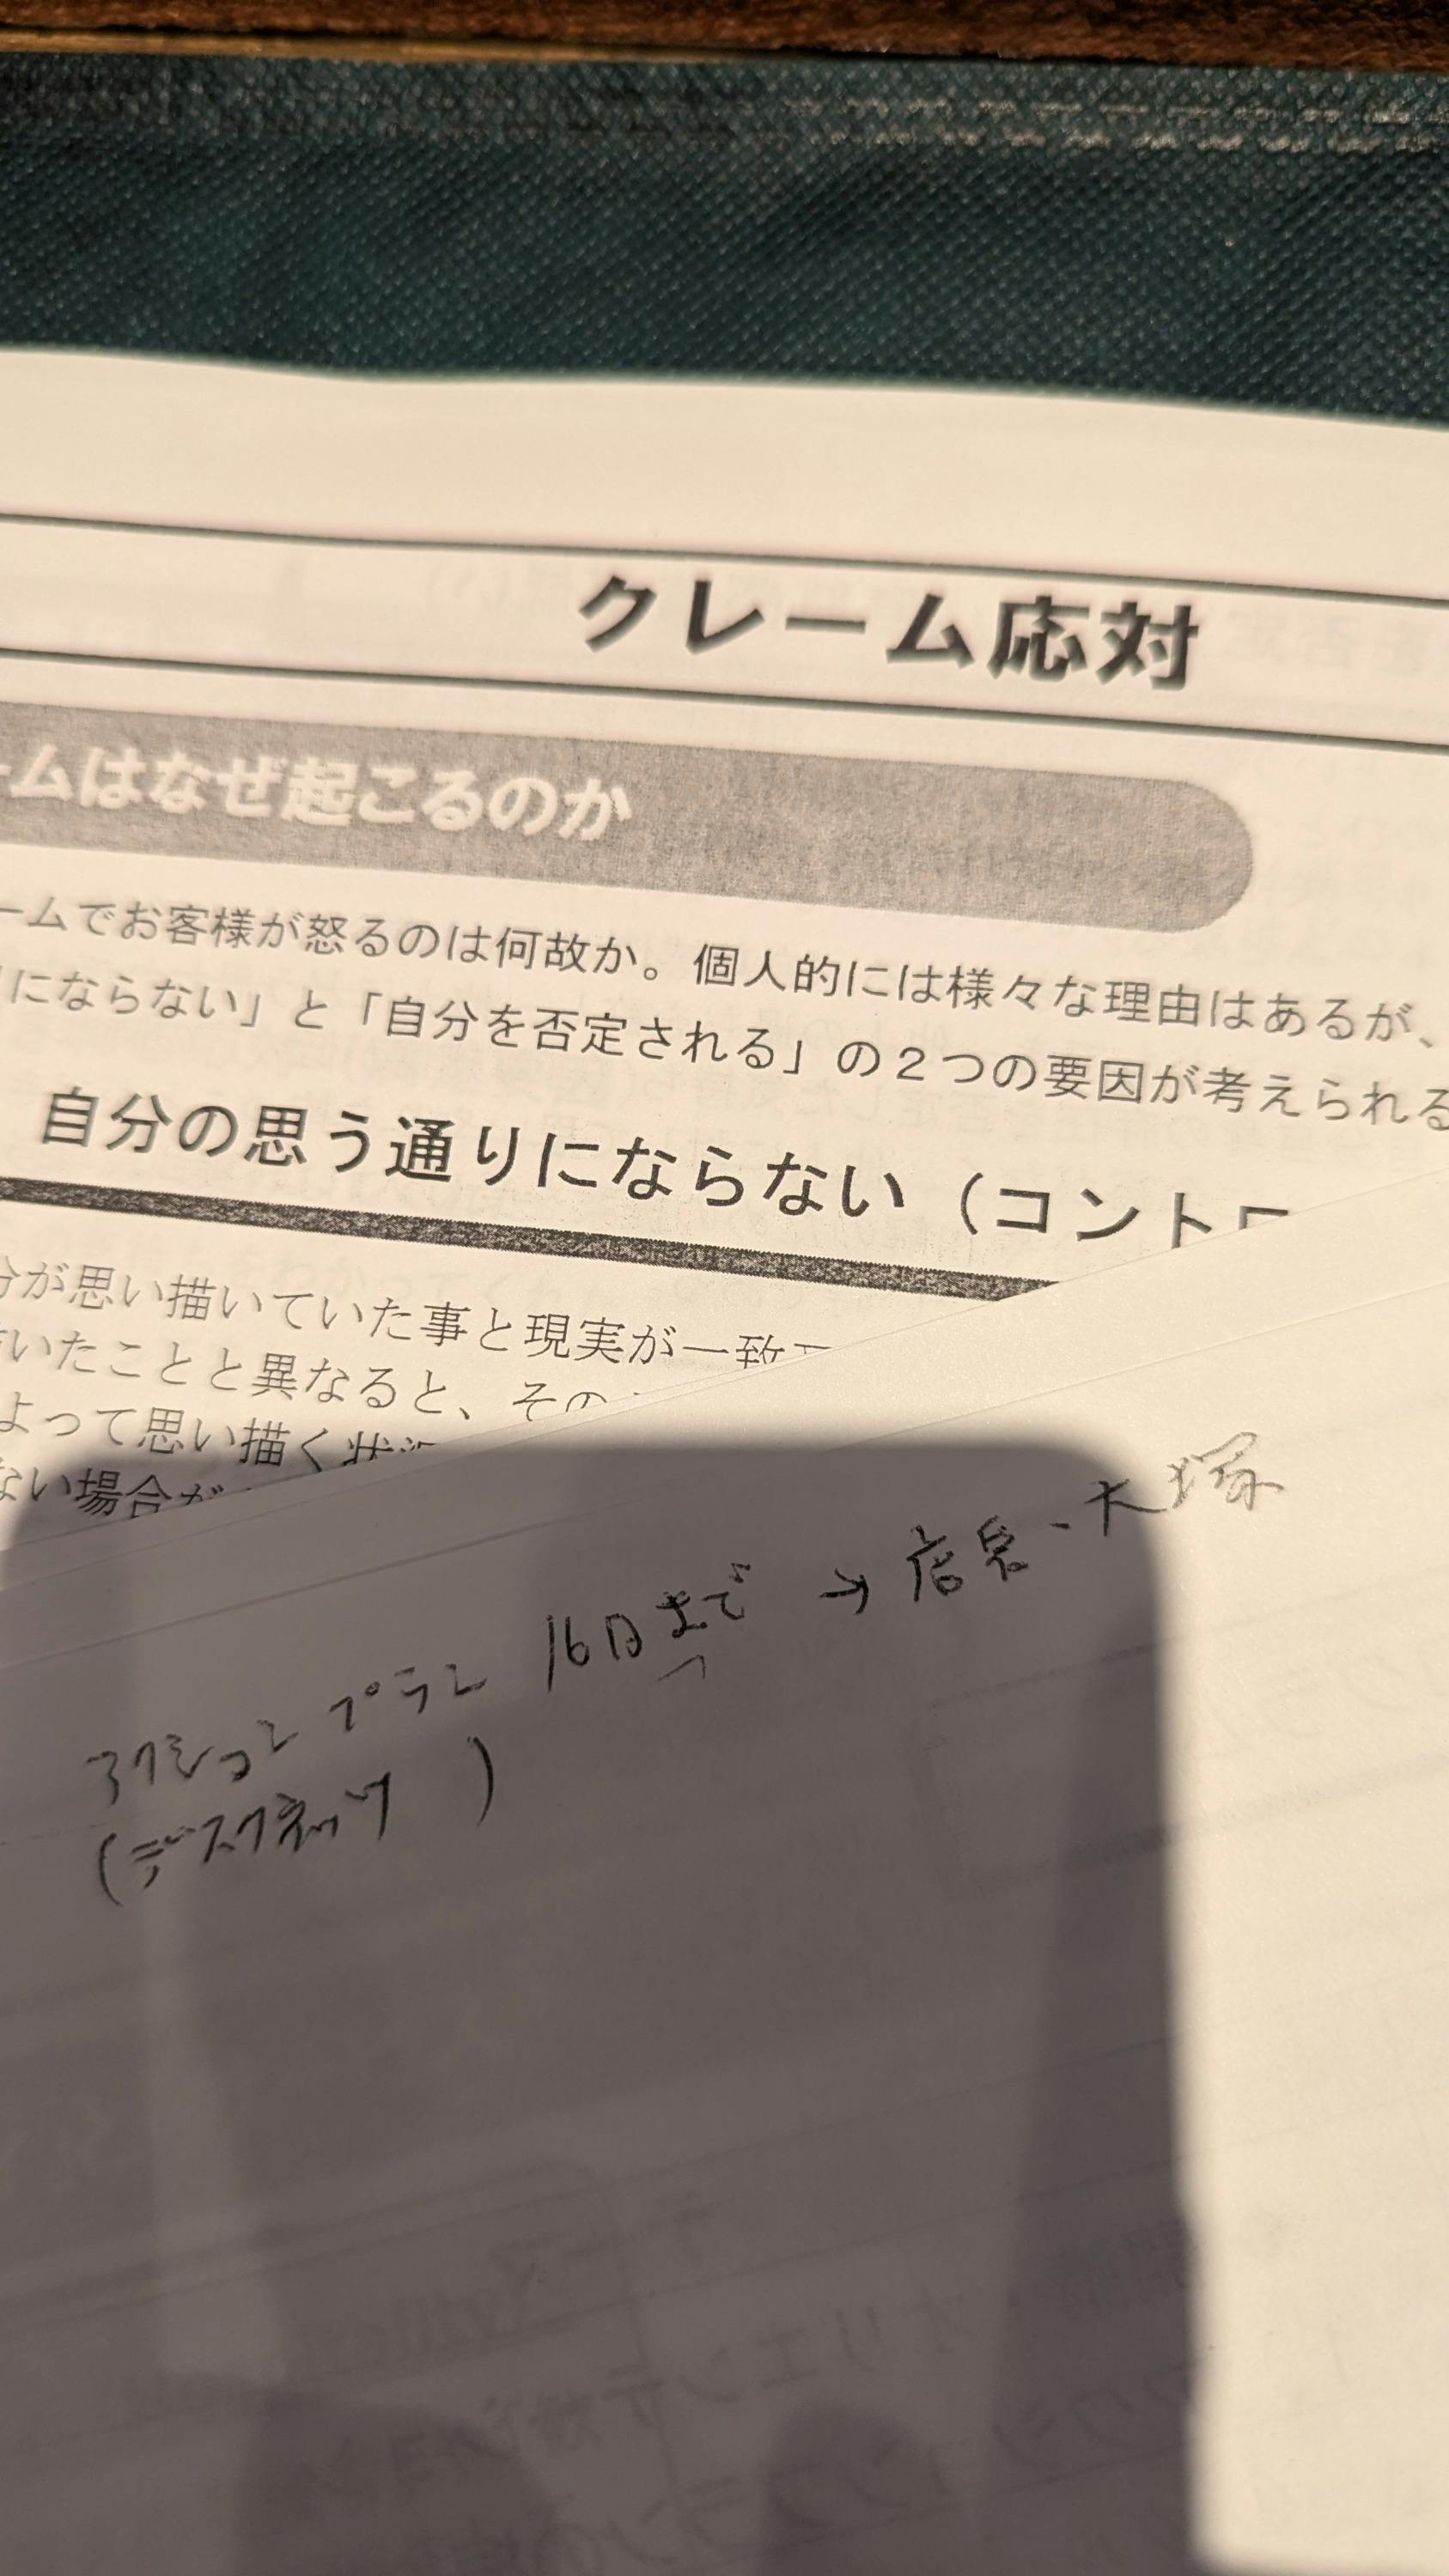 クレーム応対
ームはなぜ起こるのか
ームでお客様が怒るのは何故か。個人的には様々な理由はあるが、
りにならない」と「自分を否定される」の２つの要因が考えられる
自分の思う通りにならない（コントロ
分が思い描いていた事と現実が一致
いたことと異なると、その
よって思い描く状況
ない場合が
アクションプラン 16日まで → 店長、大塚
(デスクネッツ )